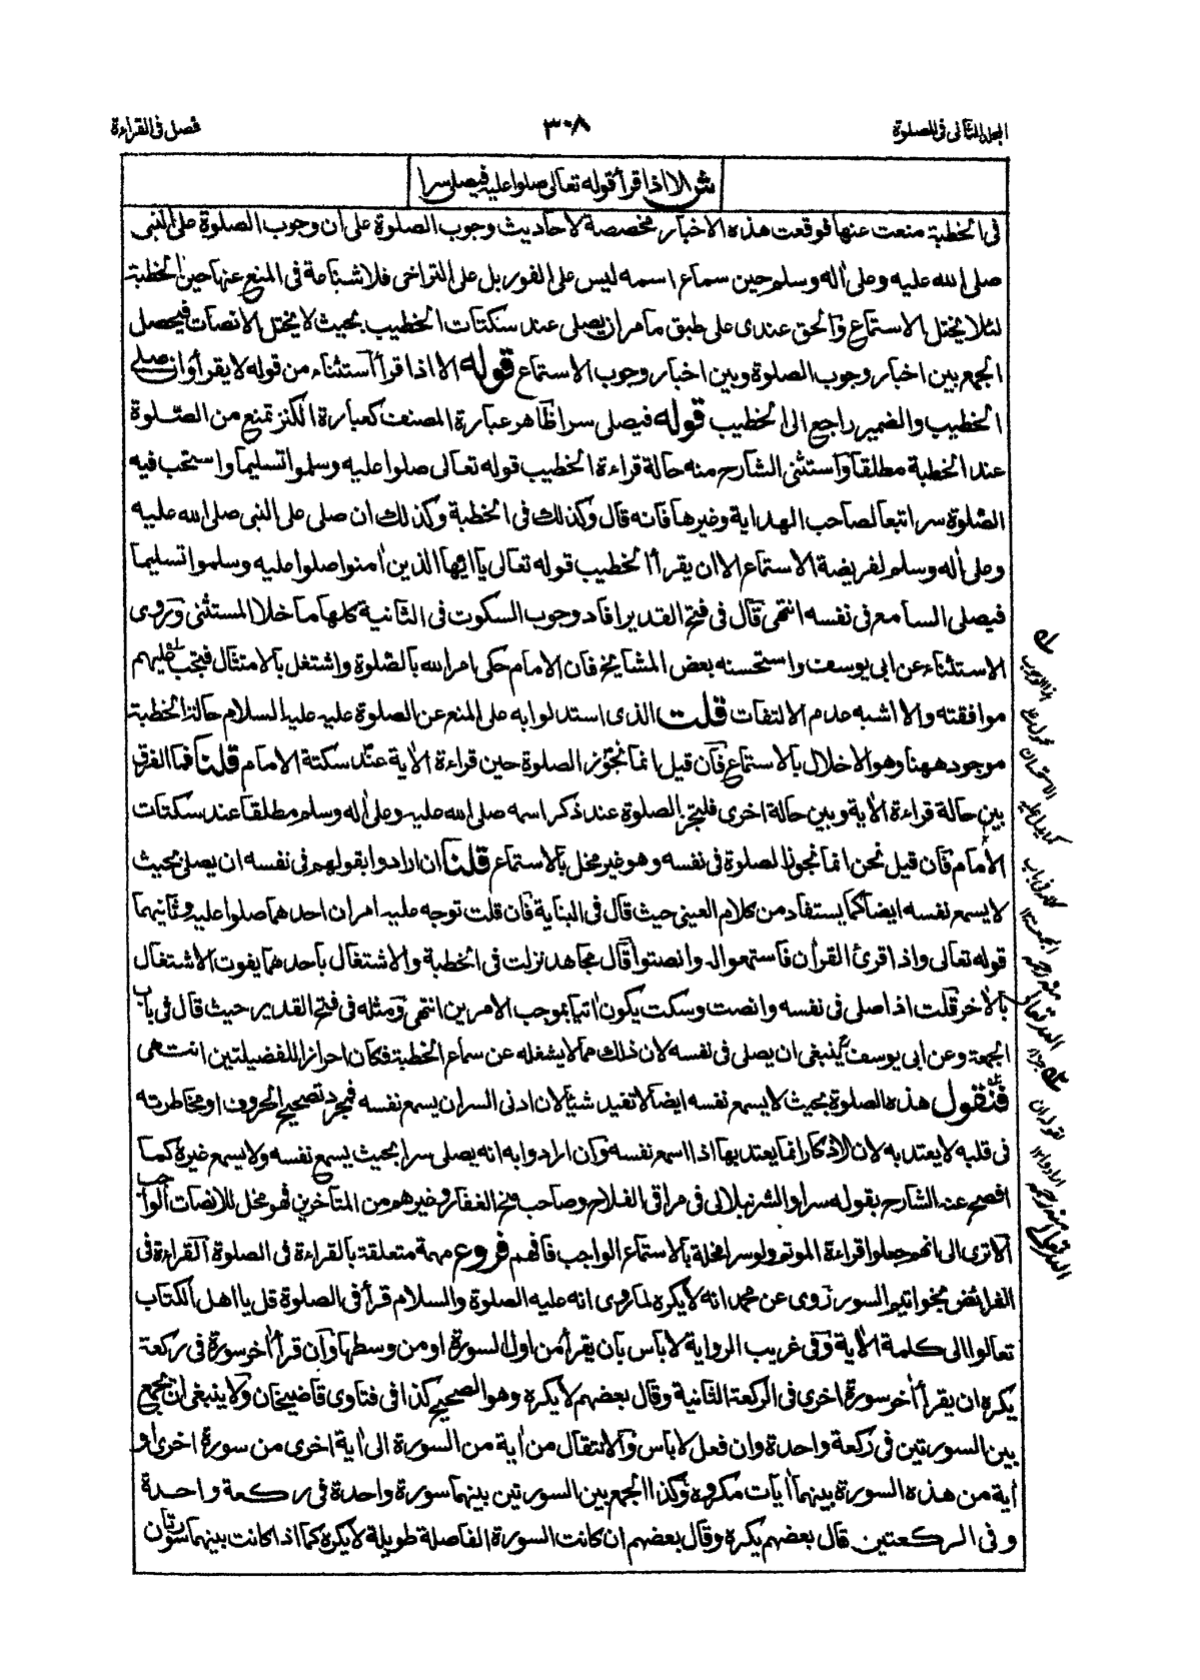 المجلد الثانی فی الصلوة
٣٠٨
فصل فی القراءة
ش الا اذا قرأ قوله تعالی صلوا علیه فیصلی سرا
فی الخطبة منعت عنها فوقعت هذه الاخبار مخصصة لاحادیث وجوب الصلوة علی ان وجوب الصلوة علی النبی
صلی الله علیه وعلی اٰله وسلم حین سماع اسمه لیس علی الفور بل علی التراخی فلا شناعة فی المنع عنها حین الخطبة
لئلا یختل الاستماع والحق عندی علی طبق ما مر ان یصلی عند سکتات الخطیب بحیث لا یختل الانصات فیحصل
الجمع بین اخبار وجوب الصلوة وبین اخبار وجوب الاستماع قوله الا اذا قرأ استثناء من قوله لا یقرأ وان صلی
الخطیب والضمیر راجع الی الخطیب قوله فیصلی سرا ظاهر عبارة المصنف کعبارة الکنز تمنع من الصلوة
عند الخطبة مطلقا واستثنی الشارح منه حالة قراءة الخطیب قوله تعالی صلوا علیه وسلموا تسلیما واستحب فیه
الصلوة سرا تبعا لصاحب الهدایة وغیرها فانه قال وکذلك فی الخطبة وکذلك ان صلی علی النبی صلی الله علیه
وعلی اٰله وسلم لفریضة الاستماع الا ان یقرأ الخطیب قوله تعالی یا ایها الذین اٰمنوا صلوا علیه وسلموا تسلیما
فیصلی السامع فی نفسه انتهی قال فی فتح القدیر افاد وجوب السکوت فی الثانیة کلها ما خلا المستثنی وروی
الاستثناء عن ابی یوسف واستحسنه بعض المشائخ فان الامام حکی امر الله بالصلوة واشتغل بالامتثال فیجب علیهم
موافقته والا اشبه عدم الالتفات قلت الذی استدلوا به علی المنع عن الصلوة علیه علیه السلام حالة الخطبة
موجود ههنا وهو الاخلال بالاستماع فان قیل انما نجوز الصلوة حین قراءة الاٰیة عند سکتة الامام قلنا فما الفرق
بین حالة قراءة الاٰیة وبین حالة اخری فلیجز الصلوة عند ذکر اسمه صلی الله علیه وعلی اٰله وسلم مطلقا عند سکتات
الامام فان قیل نحن انما نجوز الصلوة فی نفسه وهو غیر مخل بالاستماع قلنا ان ارادوا بقولهم فی نفسه ان یصلی بحیث
لا یسمع نفسه ایضا کما یستفاد من کلام العینی حیث قال فی البنایة فان قلت توجه علیه امران احدهما صلوا علیه وثانیهما
قوله تعالی واذا قرئ القراٰن فاستمعوا له وانصتوا قال مجاهد نزلت فی الخطبة والاشتغال باحدهما یفوت الاشتغال
بالاٰخر قلت اذا صلی فی نفسه وانصت وسکت یکون اٰتیا بموجب الامرین انتهی ومثله فی فتح القدیر حیث قال فی باب
الجمعة وعن ابی یوسف ینبغی ان یصلی فی نفسه لان ذلك مما لا یشغله عن سماع الخطبة فکان احرازا للفضیلتین انتهی
فنقول هذه الصلوة بحیث لا یسمع نفسه ایضا لا تفید شیئا لان ادنی السر ان یسمع نفسه فمجرد تصحیح الحروف او مخاطرته
فی قلبه لا یعتد به لان الاذکار انما یعتد بها اذا اسمع نفسه وان ارادوا به انه یصلی سرا بحیث یسمع نفسه ولا یسمع غیره کما
افصح عنه الشارح بقوله سرا والشرنبلالی فی مراقی الفلاح وصاحب منح الغفار وغیرهم من المتأخرین فهو مخل للانصات الواجب
الا تری الی انهم جعلوا قراءة الموتم ولو سرا مخلة بالاستماع الواجب فافهم فروع مهمة متعلقة بالقراءة فی الصلوة القراءة فی
الفرائض بخواتیم السور روی عن محمد انه لا یکره لما روی انه علیه الصلوة والسلام قرأ فی الصلوة قل یا اهل الکتاب
تعالوا الی کلمة الاٰیة وفی غریب الروایة لا باس بان یقرأ من اول السورة او من وسطها وان قرأ اٰخر سورة فی رکعة
یکره ان یقرأ اٰخر سورة اخری فی الرکعة الثانیة وقال بعضهم لا یکره وهو الصحیح کذا فی فتاوی قاضیخان ولا ینبغی ان یجمع
بین السورتین فی رکعة واحدة وان فعل لا باس والانتقال من اٰیة من السورة الی اٰیة اخری من سورة اخری او
اٰیة من هذه السورة بینهما اٰیات مکروه وکذا الجمع بین السورتین بینهما سورة واحدة فی رکعة واحدة
وفی الرکعتین قال بعضهم یکره وقال بعضهم ان کانت السورة الفاصلة طویلة لا یکره کما اذا کانت بینهما سورتان